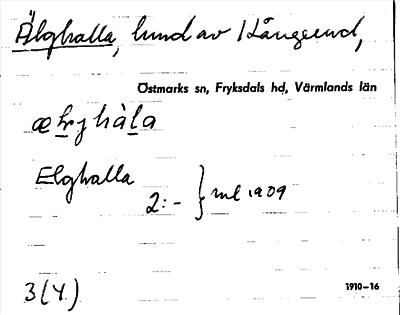 Älghalla, lund av Långerud,
Östmarks sn, Fryksdals hd, Värmlands län
Elghalla
2:- } 1909
3(4.)
1910–16